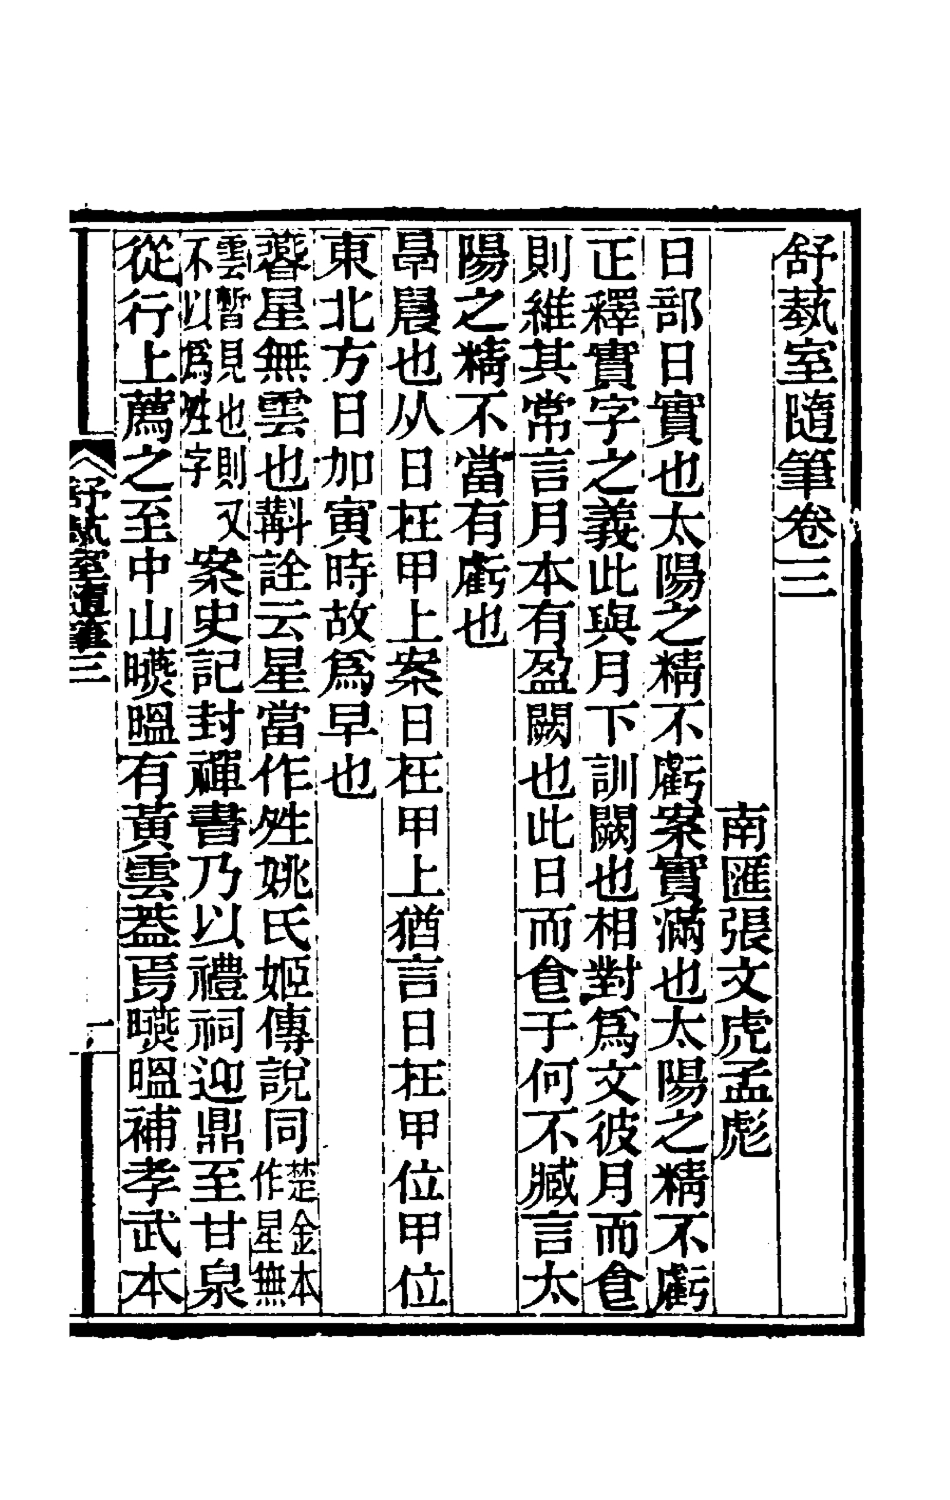 舒蓺室隨筆卷三
南匯張文虎孟彪
日部日實也太陽之精不虧案實滿也太陽之精不虧
正釋實字之義此與月下訓闕也相對爲文彼月而食
則維其常言月本有盈闕也此日而食于何不臧言太
陽之精不當有虧也
晨也从日在甲上案日在甲上猶言日在甲位甲位
東北方日加寅時故爲早也
星無雲也斠詮云星當作夝姚氏姬傳說同楚金本作星無
雲暫見也則又不以爲夝字案史記封禪書乃以禮祠迎鼎至甘泉
從行上薦之至中山曣㬈有黃雲葢焉曣㬈補孝武本
舒蓺室隨筆三
一